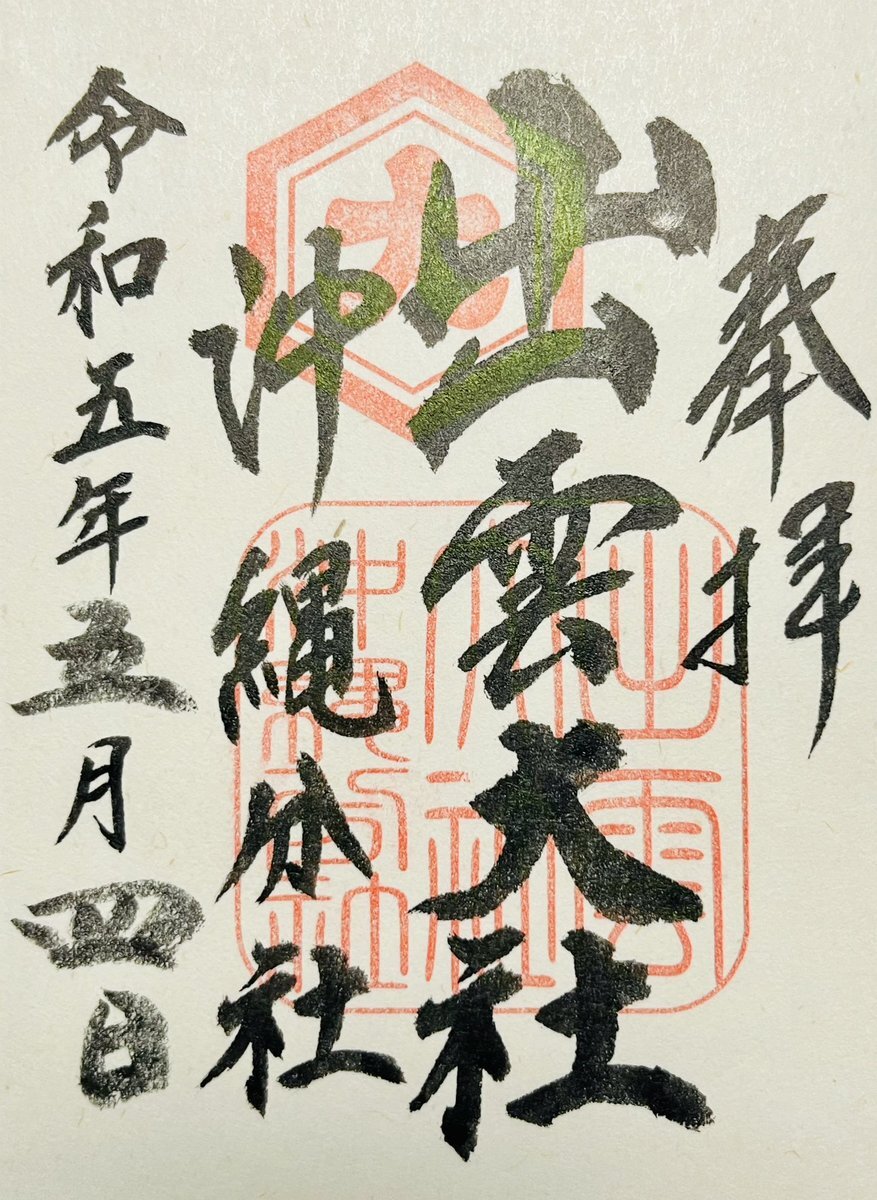 奉拝
出雲大社
沖縄分社
令和五年五月四日
大
出雲
大社
沖縄
分社